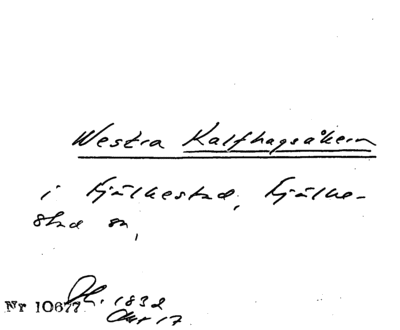 Westra Kalfhagsåkern
i Fjälkestad, Fjälke-
stad sn,
Nr 10677 Lh. 1832
Akt 17